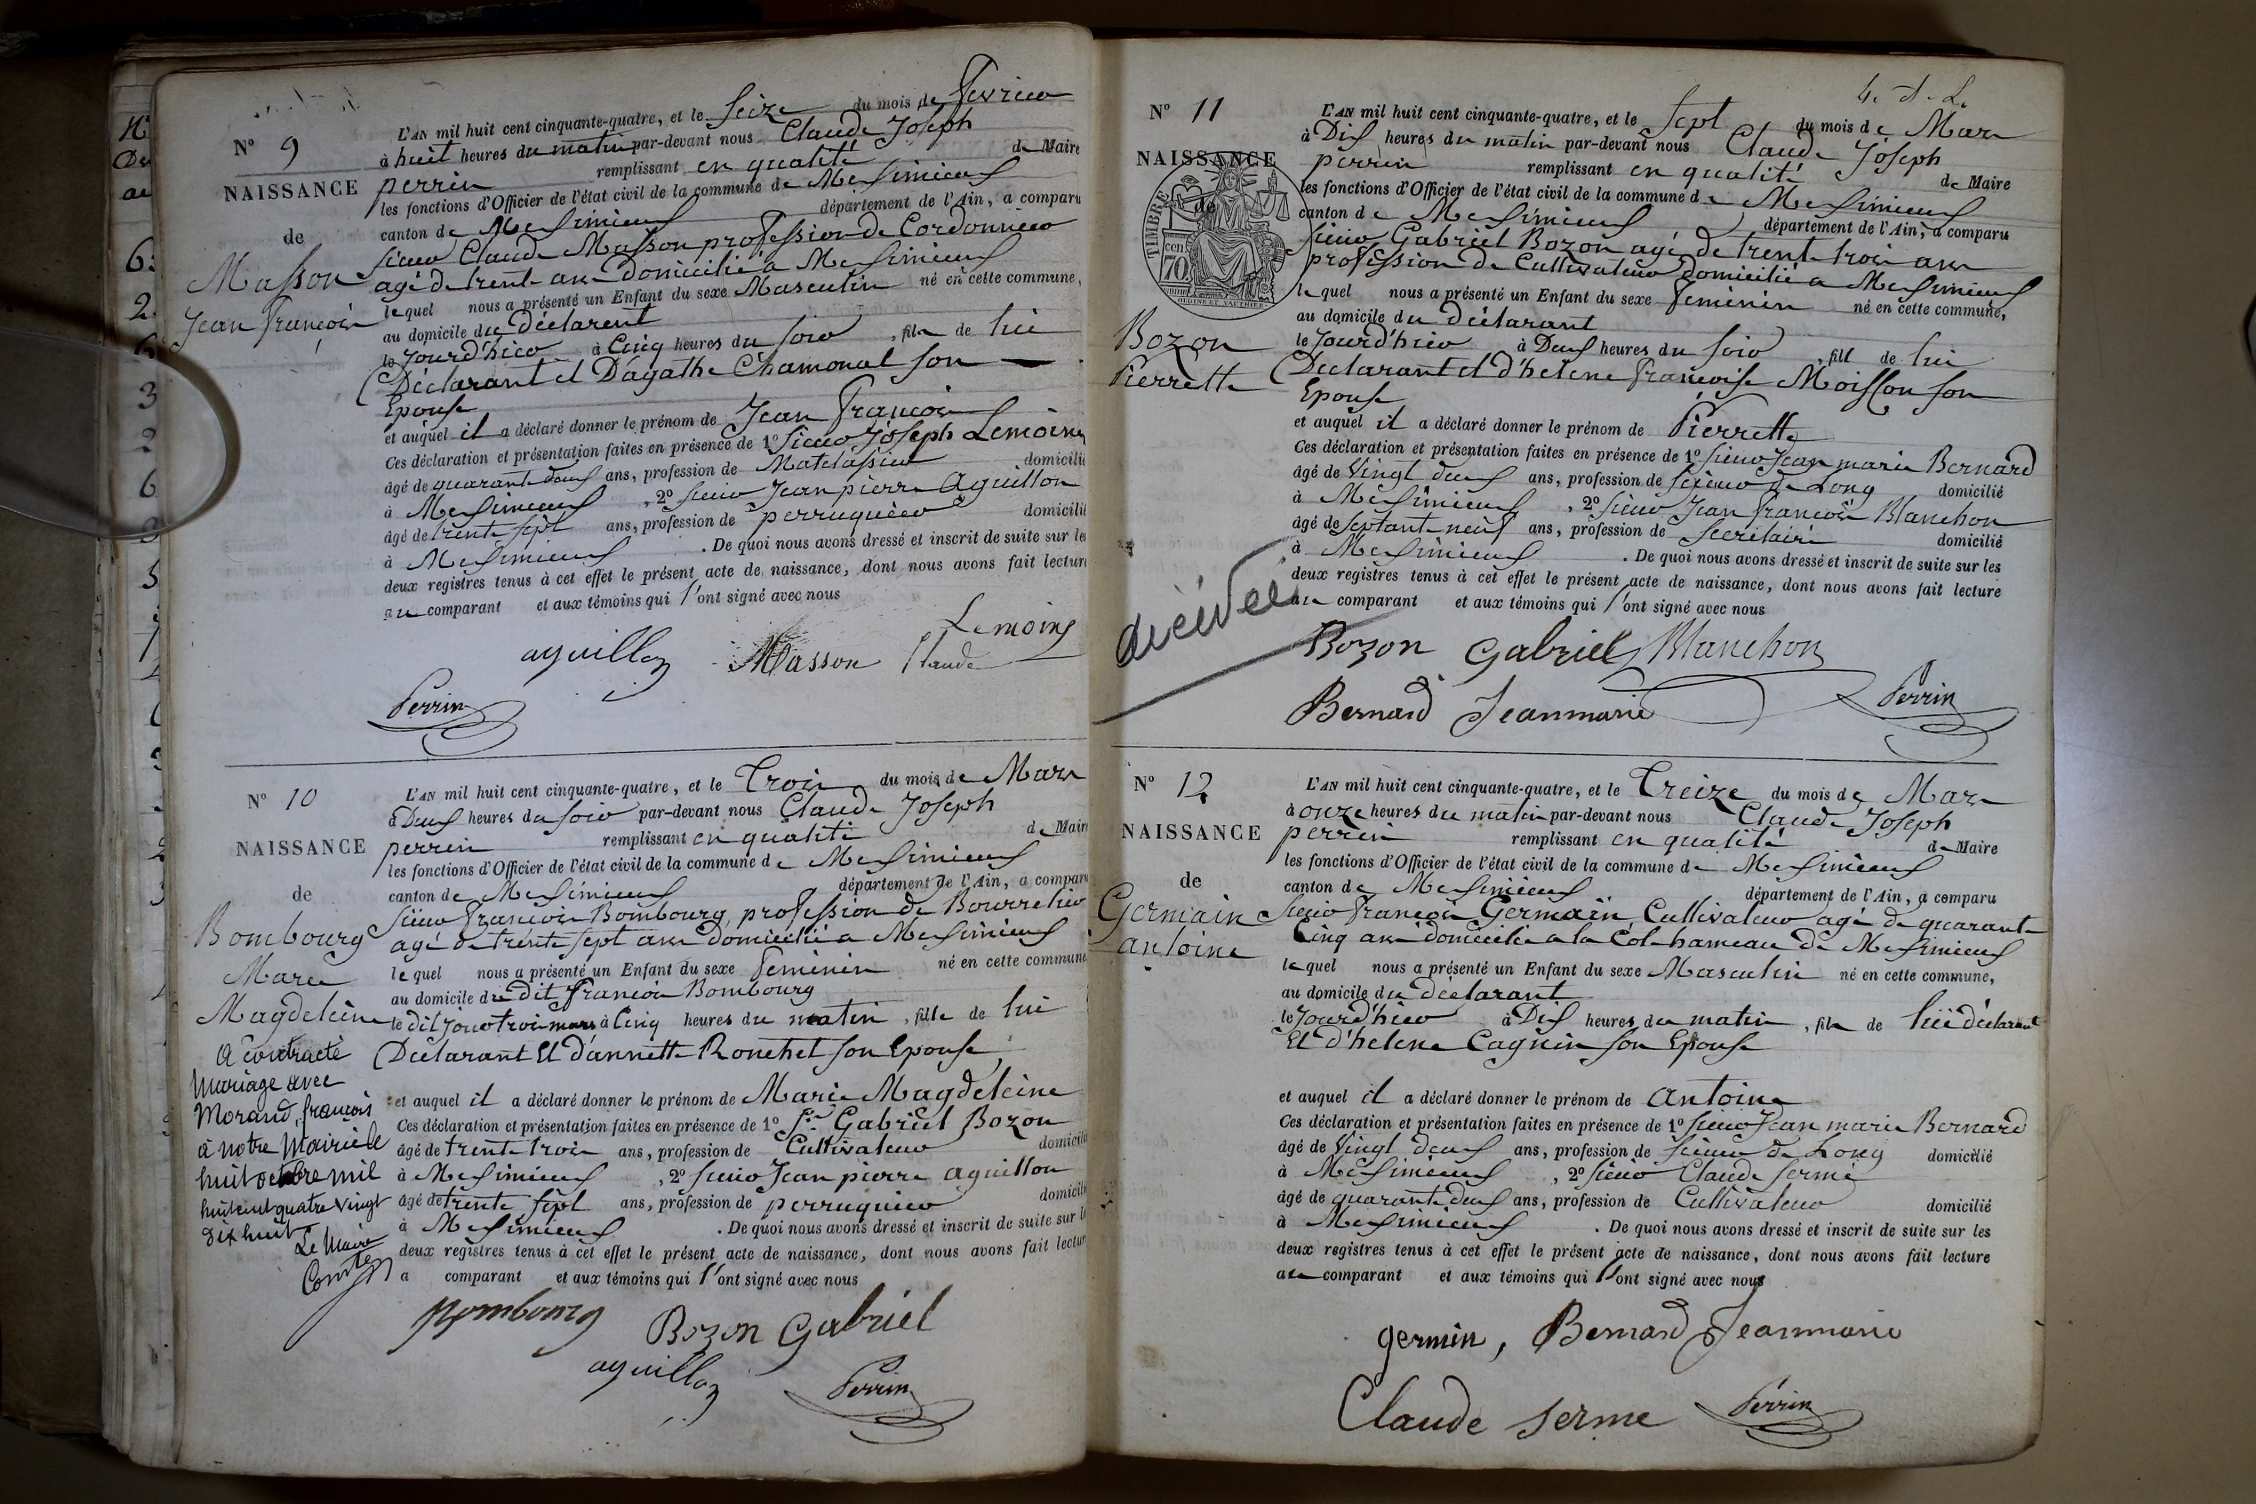 N° 9
NAISSANCE
de
Masson
Jean François
L'AN mil huit cent cinquante-quatre, et le Seize du mois de Fevrier
à huit heures du matin par-devant nous Claude Joseph
perrin remplissant en qualité de Maire
les fonctions d'Officier de l'état civil de la commune de Messimieux
canton de Messimieux département de l'Ain, a comparu
sieur Claude Masson profession de Cordonnier
agé de trente ans domicilié a Messimieux
lequel nous a présenté un Enfant du sexe Masculin né en cette commune,
au domicile du déclarent
le Jourd'hier à Cinq heures du soir, fils de lui
Déclarant et D'agathe Chamonal son
Epouse
et auquel il a déclaré donner le prénom de Jean François
Ces déclaration et présentation faites en présence de 1° sieur Joseph Lemoine
âgé de quarante deux ans, profession de Matelassier domicilié
à Messimieux, 2° sieur Jean pierre aguillon
âgé de trente sept ans, profession de perruquier domicilié
à Messimieux. De quoi nous avons dressé et inscrit de suite sur les
deux registres tenus à cet effet le présent acte de naissance, dont nous avons fait lecture
au comparant et aux témoins qui l'ont signé avec nous
Lemoine
aguillon Masson Claude
Perrin
N° 10
NAISSANCE
de
Bombourg
Marie
Magdeleine
a contracté
mariage avec
Morand, françois
à notre Mairie le
huit octobre mil
huit cent quatre vingt
dix huit
Le Maire
Comte
L'AN mil huit cent cinquante-quatre, et le Trois du mois de Mars
à Deux heures du soir par-devant nous Claude Joseph
perrin remplissant en qualité de Maire
les fonctions d'Officier de l'état civil de la commune de Messimieux
canton de Messimieux département de l'Ain, a comparu
sieur françois Bombourg, profession de Bourrelier
agé de trente sept ans domicilié a Messimieux
lequel nous a présenté un Enfant du sexe feminin né en cette commune
au domicile du dit françois Bombourg
le dit jour trois mars à Cinq heures du matin, fille de lui
Déclarant Et d'annette Ronchet son Epouse
et auquel il a déclaré donner le prénom de Marie Magdeleine
Ces déclaration et présentation faites en présence de 1° Sr. Gabriel Bozon
âgé de trente trois ans, profession de Cultivateur domicilié
à Messimieux, 2° sieur Jean pierre aguillon
âgé de trente sept ans, profession de perruquier domicilié
à Messimieux. De quoi nous avons dressé et inscrit de suite sur les
deux registres tenus à cet effet le présent acte de naissance, dont nous avons fait lecture
a comparant et aux témoins qui l'ont signé avec nous
Bombourg Bozon Gabriel
aguillon Perrin
N° 11
NAISSANCE
de
TIMBRE
70 cen
Bozon
Pierrette
décédée
L'AN mil huit cent cinquante-quatre, et le Sept du mois de Mars
à Dix heures du matin par-devant nous Claude Joseph
perrin remplissant en qualité de Maire
les fonctions d'Officier de l'état civil de la commune de Messimieux
canton de Messimieux département de l'Ain, a comparu
sieur Gabriel Bozon agé de trente trois ans
profession de Cultivateur domicilié a Messimieux
lequel nous a présenté un Enfant du sexe feminin né en cette commune,
au domicile du déclarant
le Jourd'hier à Deux heures du soir, fille de lui
Declarant et d'helene françoise Moisson son
Epouse
et auquel il a déclaré donner le prénom de Pierrette
Ces déclaration et présentation faites en présence de 1° sieur Jean marie Bernard
âgé de Vingt deux ans, profession de scieur de Long domicilié
à Messimieux, 2° sieur Jean françois Blanchon
âgé de septante neuf ans, profession de Secrétaire domicilié
à Messimieux. De quoi nous avons dressé et inscrit de suite sur les
deux registres tenus à cet effet le présent acte de naissance, dont nous avons fait lecture
au comparant et aux témoins qui l'ont signé avec nous
Bozon Gabriel Blanchon
Bernard Jeanmarie Perrin
N° 12
NAISSANCE
de
Germain
antoine
L'AN mil huit cent cinquante-quatre, et le Treize du mois de Mars
à onze heures du matin par-devant nous Claude Joseph
perrin remplissant en qualité de Maire
les fonctions d'Officier de l'état civil de la commune de Messimieux
canton de Messimieux département de l'Ain, a comparu
sieur françois Germain Cultivateur agé de quarante
Cinq ans domicilié a la Cote hameau de Messimieux
lequel nous a présenté un Enfant du sexe Masculin né en cette commune,
au domicile du déclarant
le Jourd'hier à Dix heures du matin, fils de lui déclarant
Et d'helene Cagnin son Epouse
et auquel il a déclaré donner le prénom de antoine
Ces déclaration et présentation faites en présence de 1° sieur Jean marie Bernard
âgé de Vingt deux ans, profession de scieur de Long domicilié
à Messimieux, 2° sieur Claude serme
âgé de quarante deux ans, profession de Cultivateur domicilié
à Messimieux. De quoi nous avons dressé et inscrit de suite sur les
deux registres tenus à cet effet le présent acte de naissance, dont nous avons fait lecture
au comparant et aux témoins qui l'ont signé avec nous
germin, Bernard Jeanmarie
Claude serme Perrin